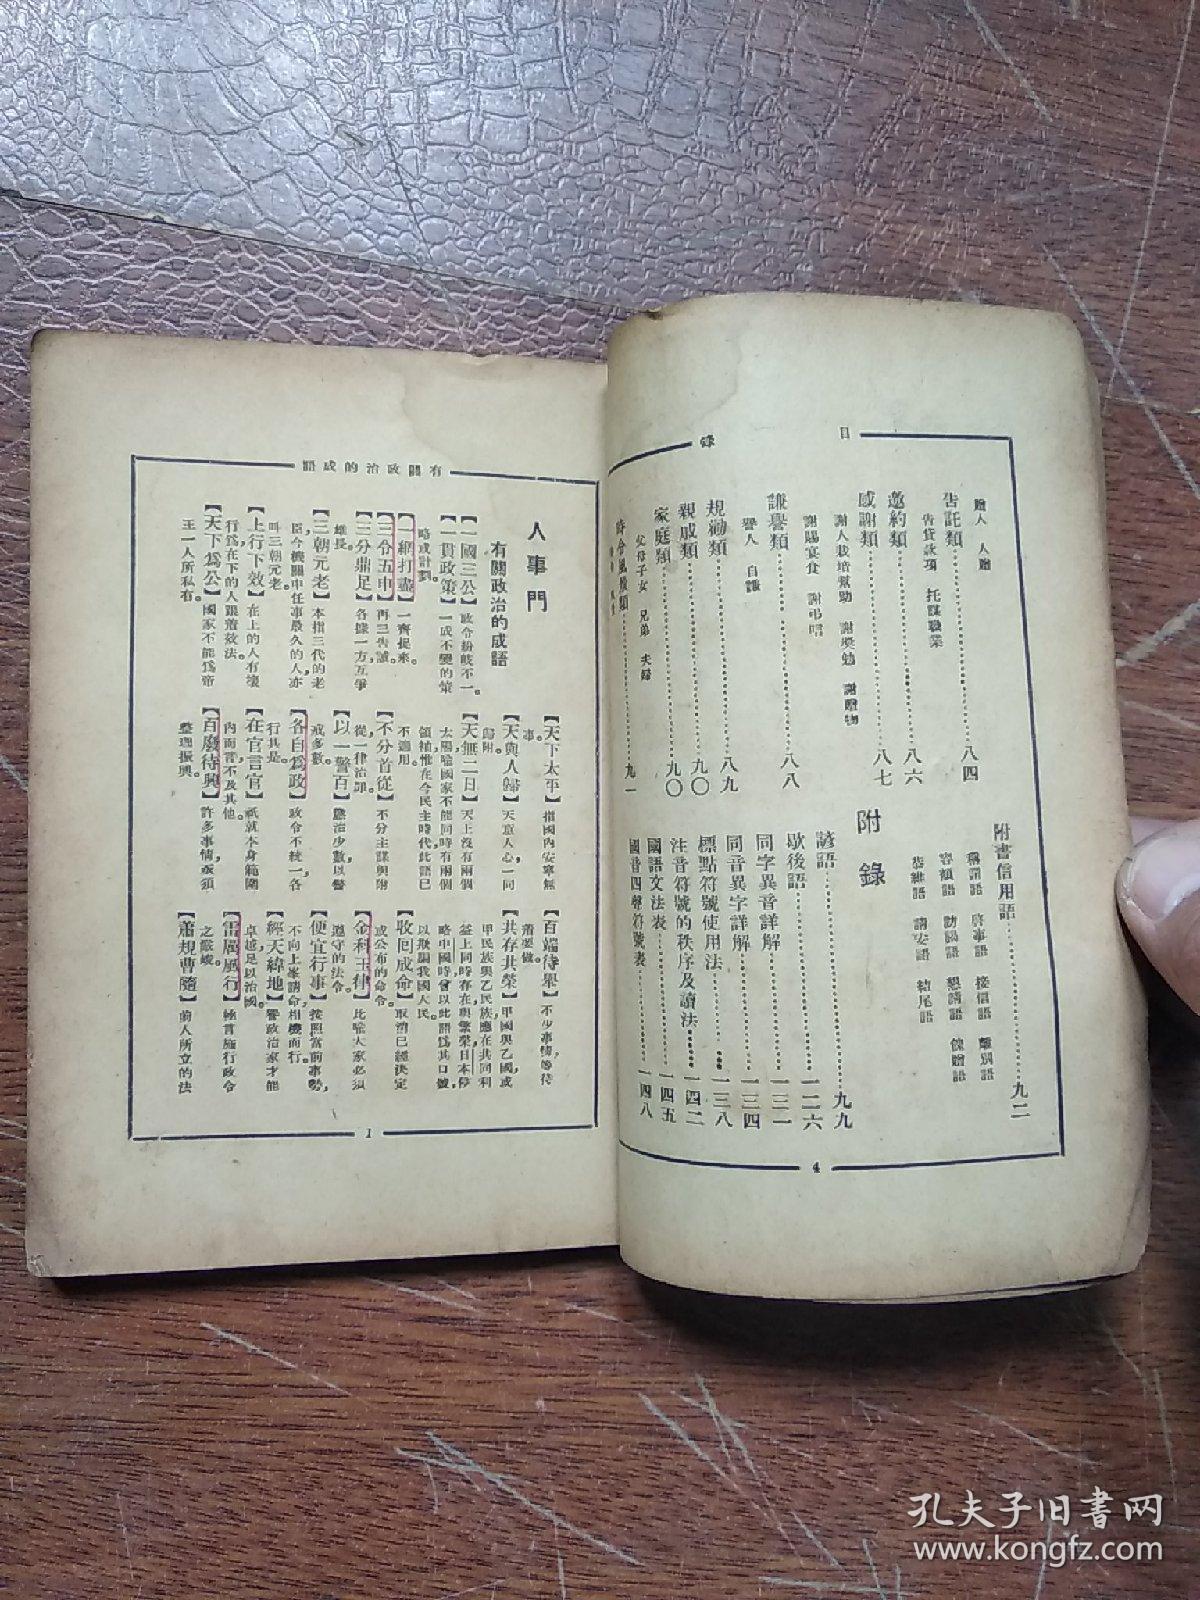 目錄
贈人 人贈
告託類……八四
告貸款項 托謀職業
邀約類……八六
感謝類……八七
謝人栽培幫助 謝獎勉 謝贈物
謝賜宴食 謝弔唁
謙譽類……八八
譽人 自謙
規勸類……八九
親戚類……九〇
家庭類……九〇
父母子女 兄弟 夫婦
時令風候類……九一
附書信用語……九二
稱謂語 啓事語 接信語 離別語
寄頓語 訪問語 懇請語 餽贈語
恭維語 請安語 結尾語
附錄
諺語……九九
歇後語……一二六
同字異音詳解……一三一
同音異字詳解……一三四
標點符號使用法……一三八
注音符號的秩序及讀法……一四二
國語文法表……一四五
國音四聲符號表……一四八
4
有關政治的成語
人事門
有關政治的成語
【一國三公】政令紛歧不一。
【一貫政策】一成不變的策
略或計劃。
【一網打盡】一齊捉來。
【三令五申】再三告誡。
【三分鼎足】各據一方互爭
雄長。
【三朝元老】本指三代的老
臣今機關中任事最久的人,亦
叫三朝元老。
【上行下效】在上的人有壞
行爲在下的人跟着效法。
【天下爲公】國家不能爲帝
王一人所私有。
【天下太平】指國內安寧無
事。
【天與人歸】天意人心,一同
歸附。
【天無二日】天上沒有兩個
太陽喻國家不能同時有兩個
領袖惟在今民主時代此語已
不適用。
【不分首從】不分主謀與附
從,一律治罪。
【以一警百】懲治少數以警
戒多數。
【各自爲政】政令不統一各
行其是。
【在官言官】祇就本身範圍
內而言不及其他。
【百廢待興】許多事情亟須
整理振興。
【百端待舉】不少事情等待
着要做。
【共存共榮】甲國與乙國或
甲民族與乙民族應在共同利
益上同時存在與繁榮日本侵
略中國時曾以此語爲其口號
以欺騙我國人民。
【收回成命】取消已經決定
或公布的命令。
【金科玉律】比喻大家必須
遵守的法令。
【便宜行事】按照當前事勢,
不向上峯請命相機而行。
【經天緯地】譽政治家才能
卓越足以治國。
【雷厲風行】極言施行政令
之嚴峻。
【蕭規曹隨】前人所立的法
1
孔夫子旧书网
www.kongfz.com